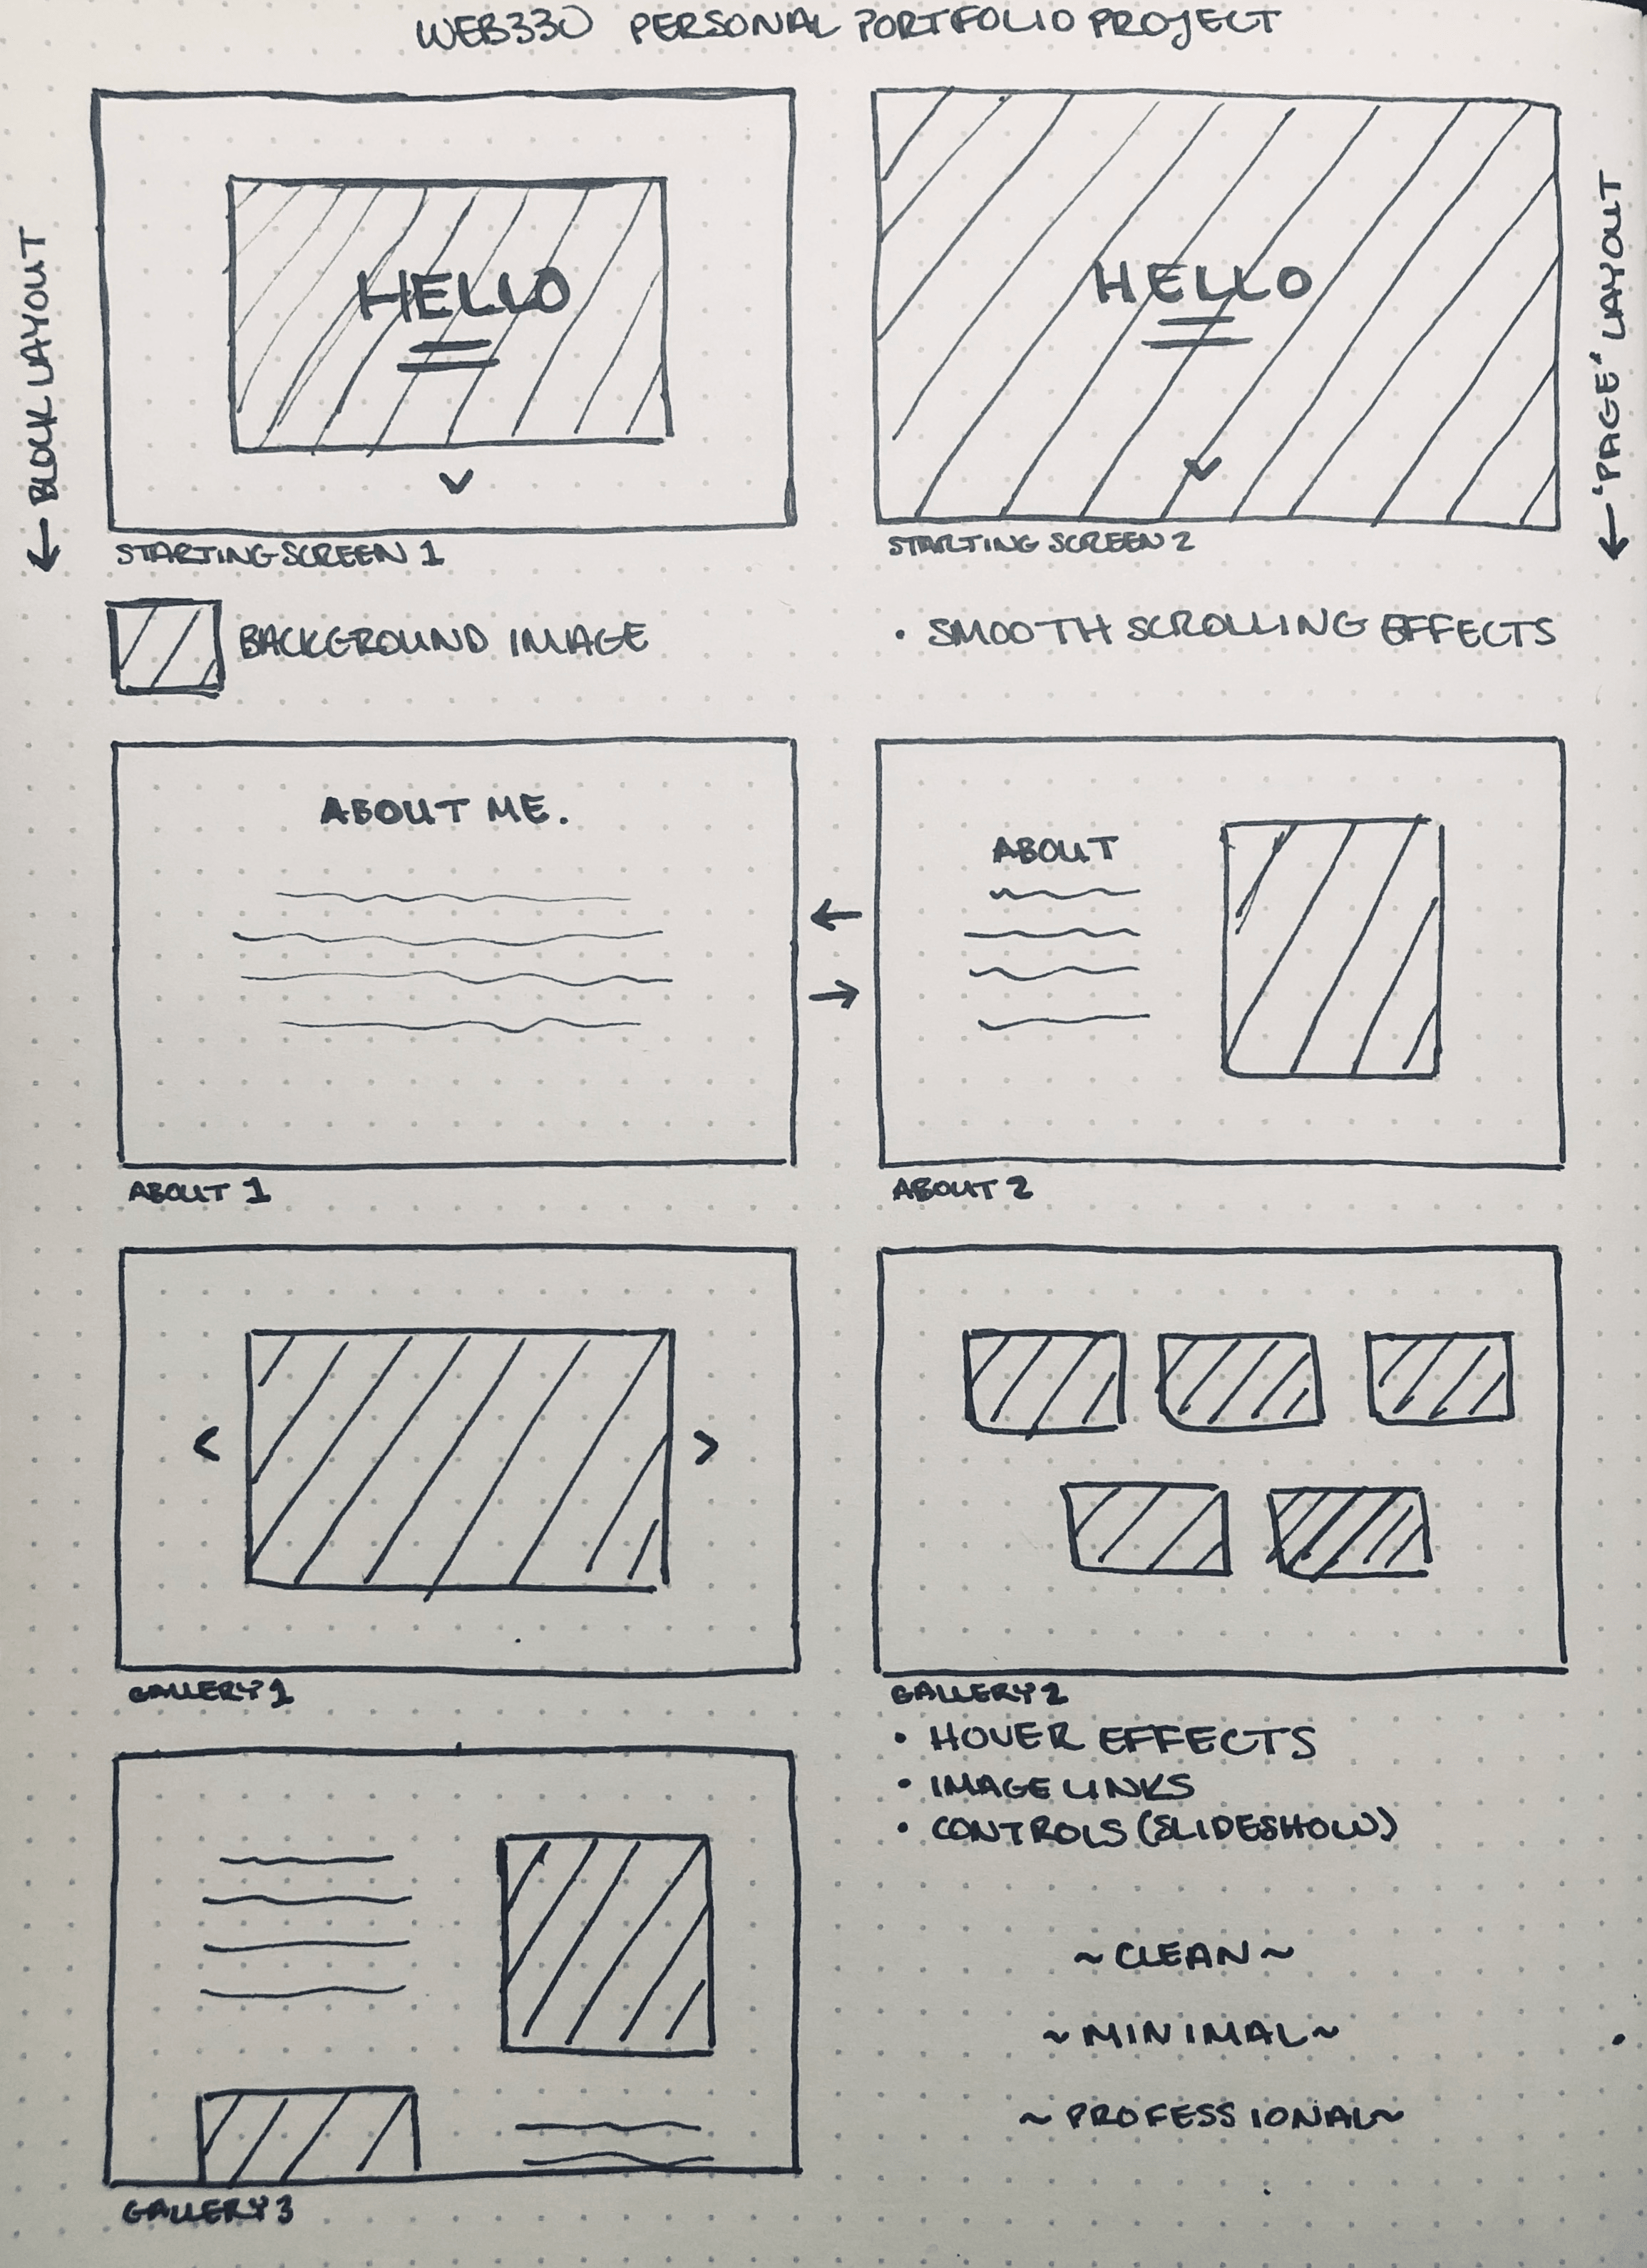 WEB330 PERSONAL PORTFOLIO PROJECT
← BLOCK LAYOUT
HELLO
STARTING SCREEN 1
HELLO
STARTING SCREEN 2
← "PAGE" LAYOUT
BACKGROUND IMAGE
• SMOOTH SCROLLING EFFECTS
ABOUT ME.
ABOUT 1
ABOUT
ABOUT 2
< >
GALLERY 1
GALLERY 2
• HOVER EFFECTS
• IMAGE LINKS
• CONTROLS (SLIDESHOW)
~ CLEAN ~
~ MINIMAL ~
~ PROFESSIONAL ~
GALLERY 3